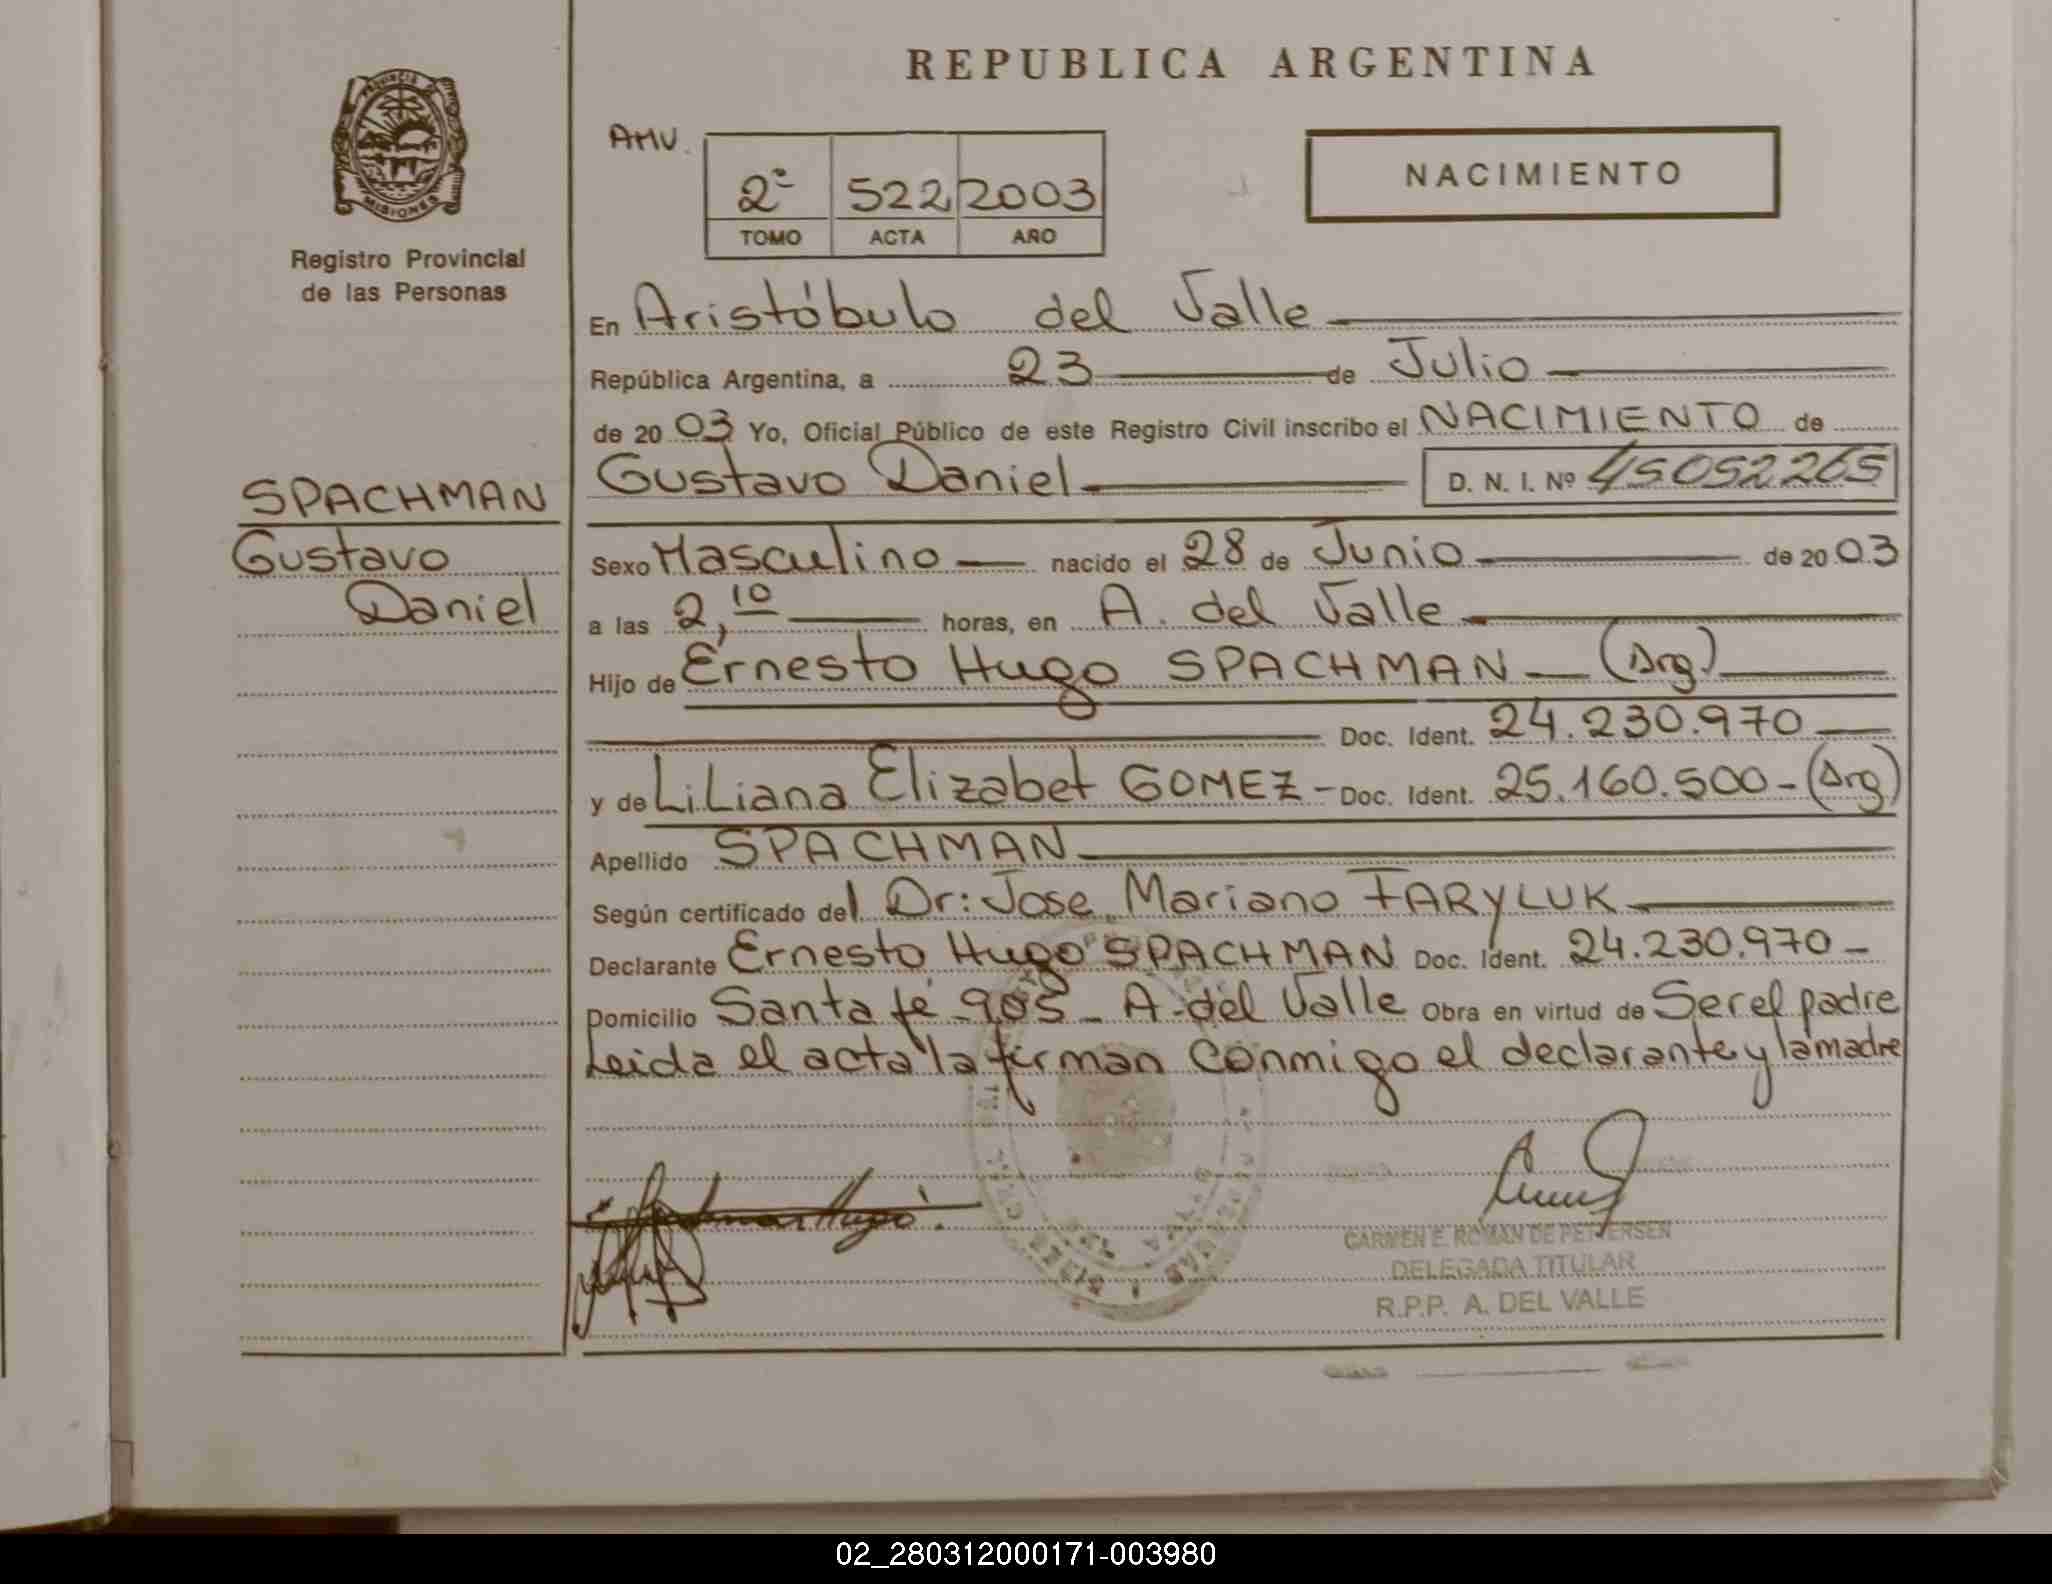 REPUBLICA ARGENTINA
PROVINCIA DE
MISIONES
Registro Provincial
de las Personas
AMV.
2º 522 2003
TOMO ACTA AÑO
NACIMIENTO
En Aristóbulo del Valle
República Argentina, a 23 de Julio
de 20 03 Yo, Oficial Público de este Registro Civil inscribo el NACIMIENTO de
Gustavo Daniel D. N. I. Nº 45052265
SPACHMAN
Gustavo
Daniel
Sexo Masculino nacido el 28 de Junio de 20 03
a las 2,10 horas, en A. del Valle
Hijo de Ernesto Hugo SPACHMAN (Arg)
Doc. Ident. 24.230.970
y de Liliana Elizabet GOMEZ - Doc. Ident. 25.160.500 - (Arg)
Apellido SPACHMAN
Según certificado del Dr: Jose Mariano FARYLUK
Declarante Ernesto Hugo SPACHMAN Doc. Ident. 24.230.970 -
Domicilio Santa fé 905 - A. del Valle Obra en virtud de Ser el padre
Leida el acta la firman conmigo el declarante y la madre
CARMEN E. ROMAN DE PETTERSEN
DELEGADA TITULAR
R.P.P. A. DEL VALLE
02_280312000171-003980